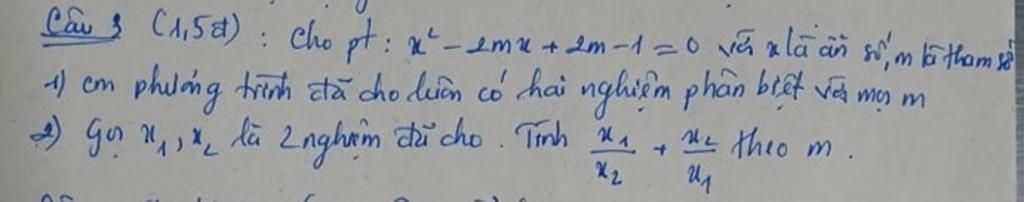 Câu 3 (1,5đ) : Cho pt : x² - 2mx + 2m - 1 = 0 với x là ẩn số, m là tham số
1) cm phương trình đã cho luôn có hai nghiệm phân biệt với mọi m
2) Gọi x₁, x₂ là 2 nghiệm đã cho. Tính x₁/x₂ + x₂/x₁ theo m.